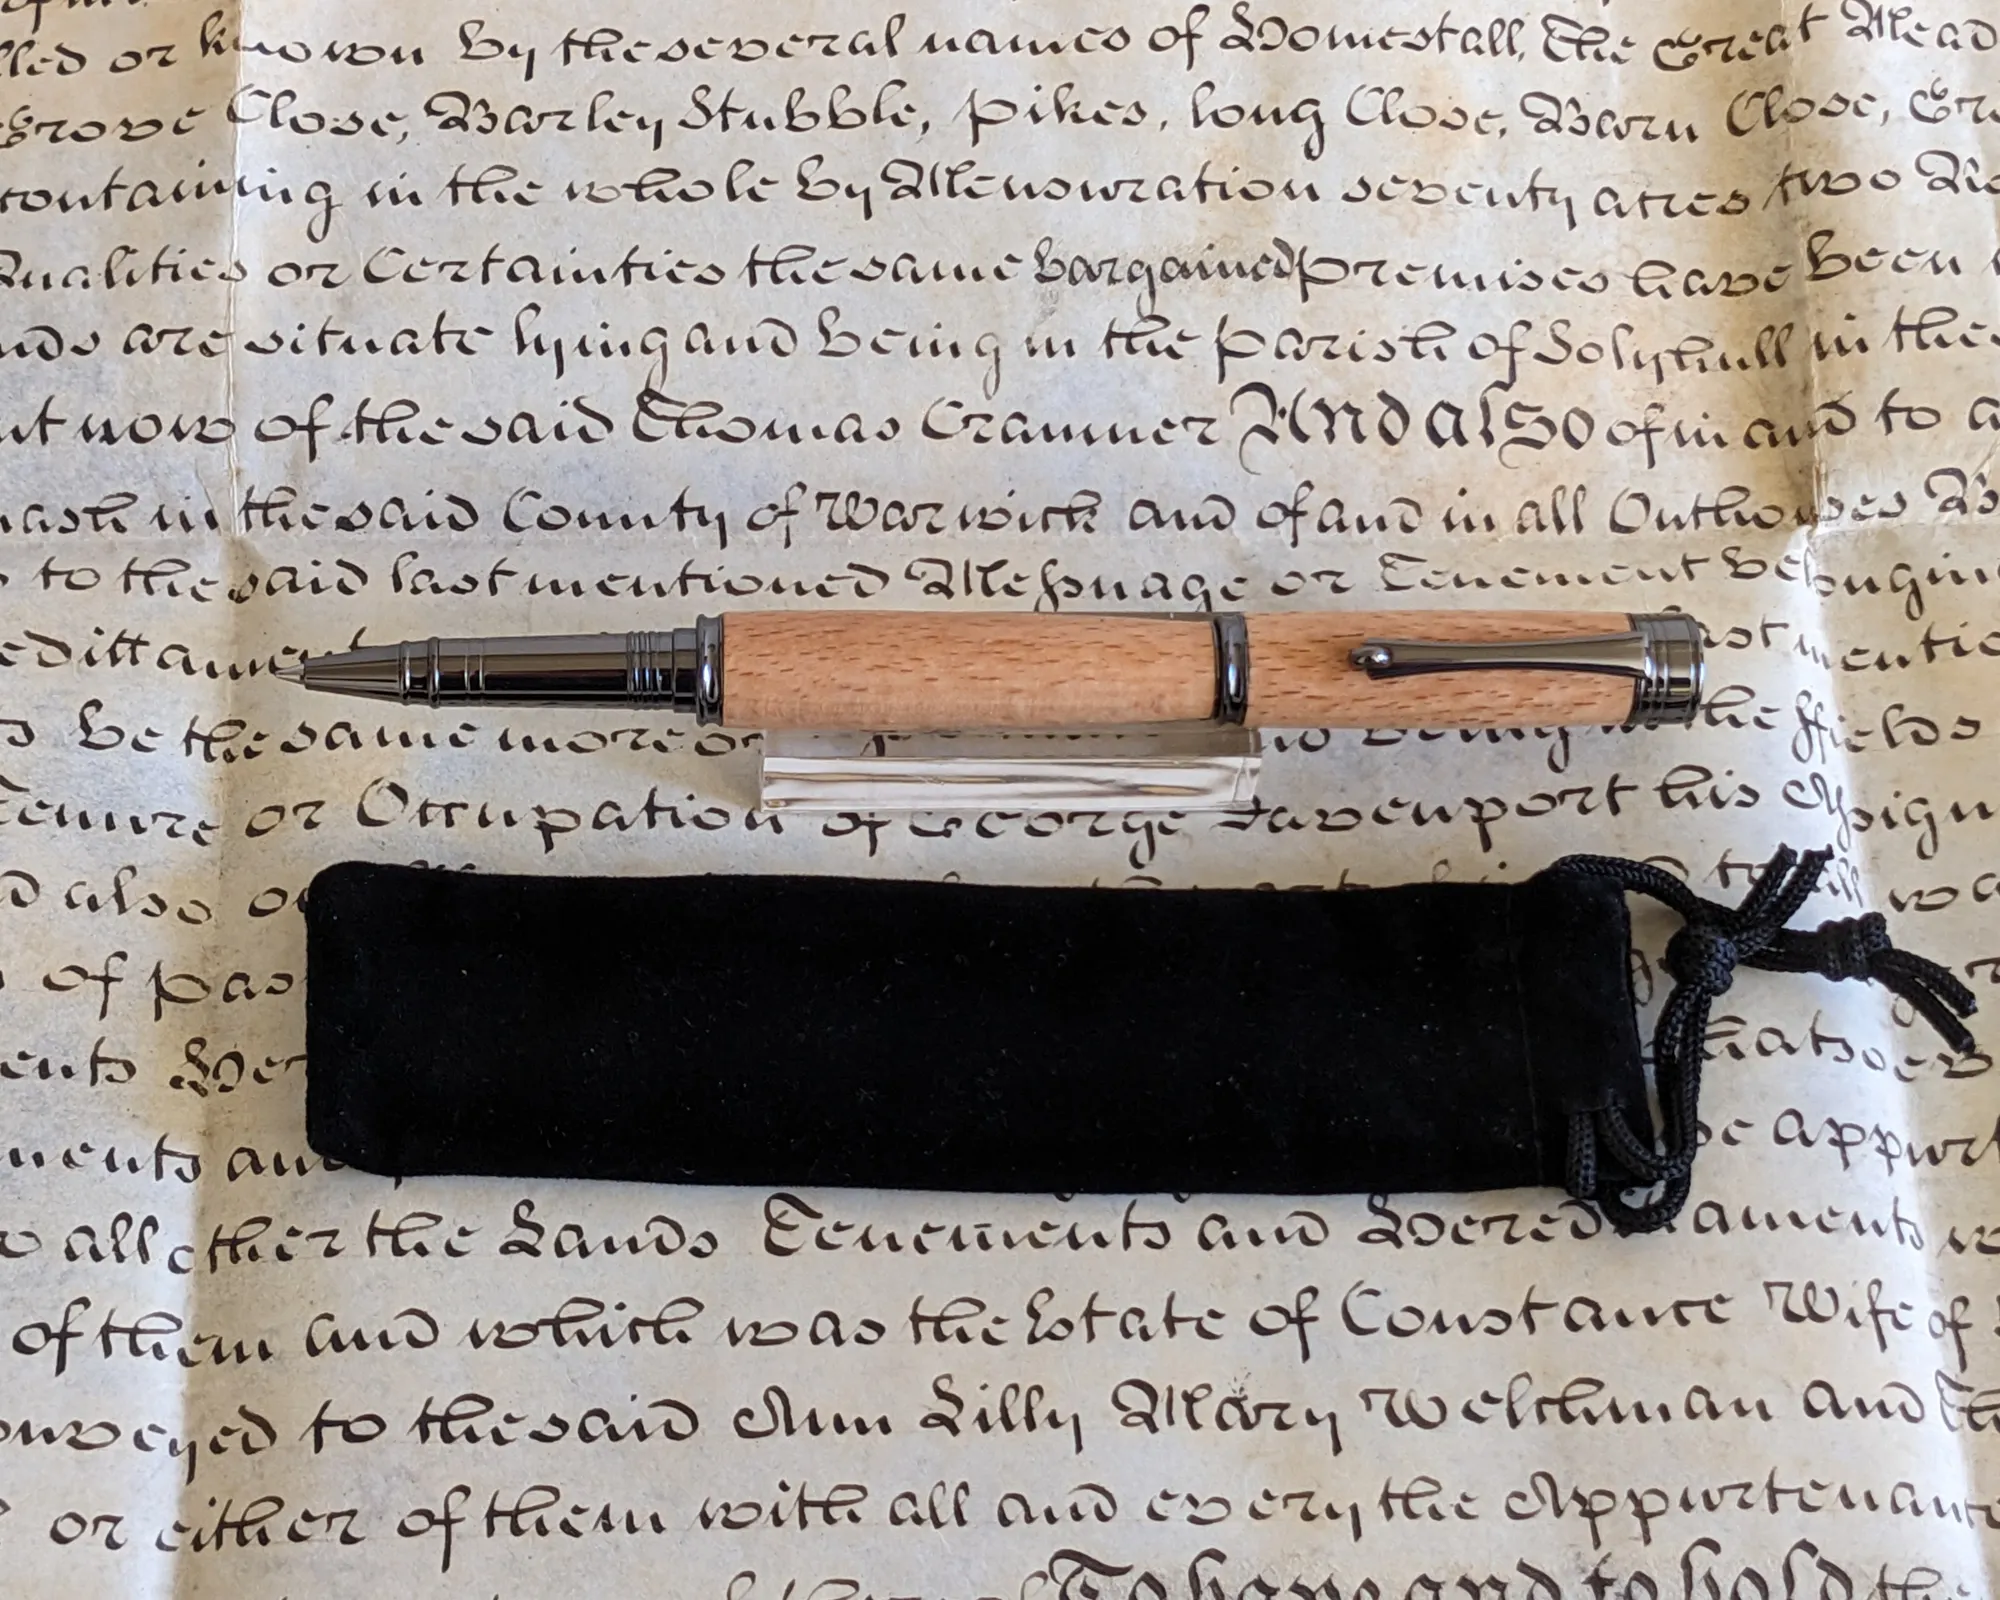 lled or known by the several names of Homestall, The Great Mead
Grove Close, Barley Stubble, Pikes, long Close, Barn Close, Gr
containing in the whole by Mensuration seventy acres two Ro
Qualities or Certainties the same bargained premises have been
nds are situate lying and being in the parish of Solyhull in the
nt now of the said Thomas Cranmer And also of in and to a
in the said County of Warwick and of and in all Outhouses B
to the said last mentioned Messuage or Tenement belonging
editament last mentio
be the same more or and being in the ffields
Tenure or Occupation of George Davenport his Assign
d also
of pas
ents Her hatsoev
ments and appurt
all other the Lands Tenements and Hereditaments
of them and which was the Estate of Constance Wife of
onveyed to the said Ann Lilly Mary Welchman and
or either of them with all and every the Appurtenance
To have and to hold the